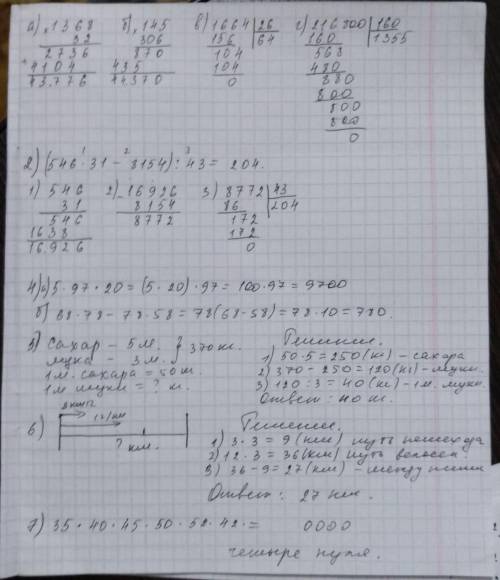 а) × 1368 б) × 145 в) 1664 | 26 г) 216800 | 160
32 306 156 64 160 1355
2736 870 104 568
+ 4104 435 104 480
43.776 44370 0 880
800
800
800
0
2) (546 · 31 - 8154) : 43 = 204.
1) 546 2) - 16926 3) 8772 | 43
31 8154 86 204
546 8772 172
1638 172
16.926 0
4) а) 5 · 97 · 20 = (5 · 20) · 97 = 100 · 97 = 9700
б) 68 · 78 - 78 · 58 = 78(68-58) = 78 · 10 = 780.
5) Сахар - 5 м. } 370 кг. Решение.
мука - 3 м. 1) 50 · 5 = 250 (кг) - сахара
1 м. сахара = 50 кг. 2) 370 - 250 = 120 (кг) - муки.
1 м муки = ? кг. 3) 120 : 3 = 40 (кг) - 1 м. муки.
Ответ: 40 кг.
6) 12/км Решение.
? км. 1) 3 · 3 = 9 (км) путь пешехода
2) 12 · 3 = 36 (км) путь велосип.
3) 36 - 9 = 27 (км) - между ними
Ответ: 27 км.
7) 35 · 40 · 45 · 50 · 52 · 42 · = 0000
четыре нуля.